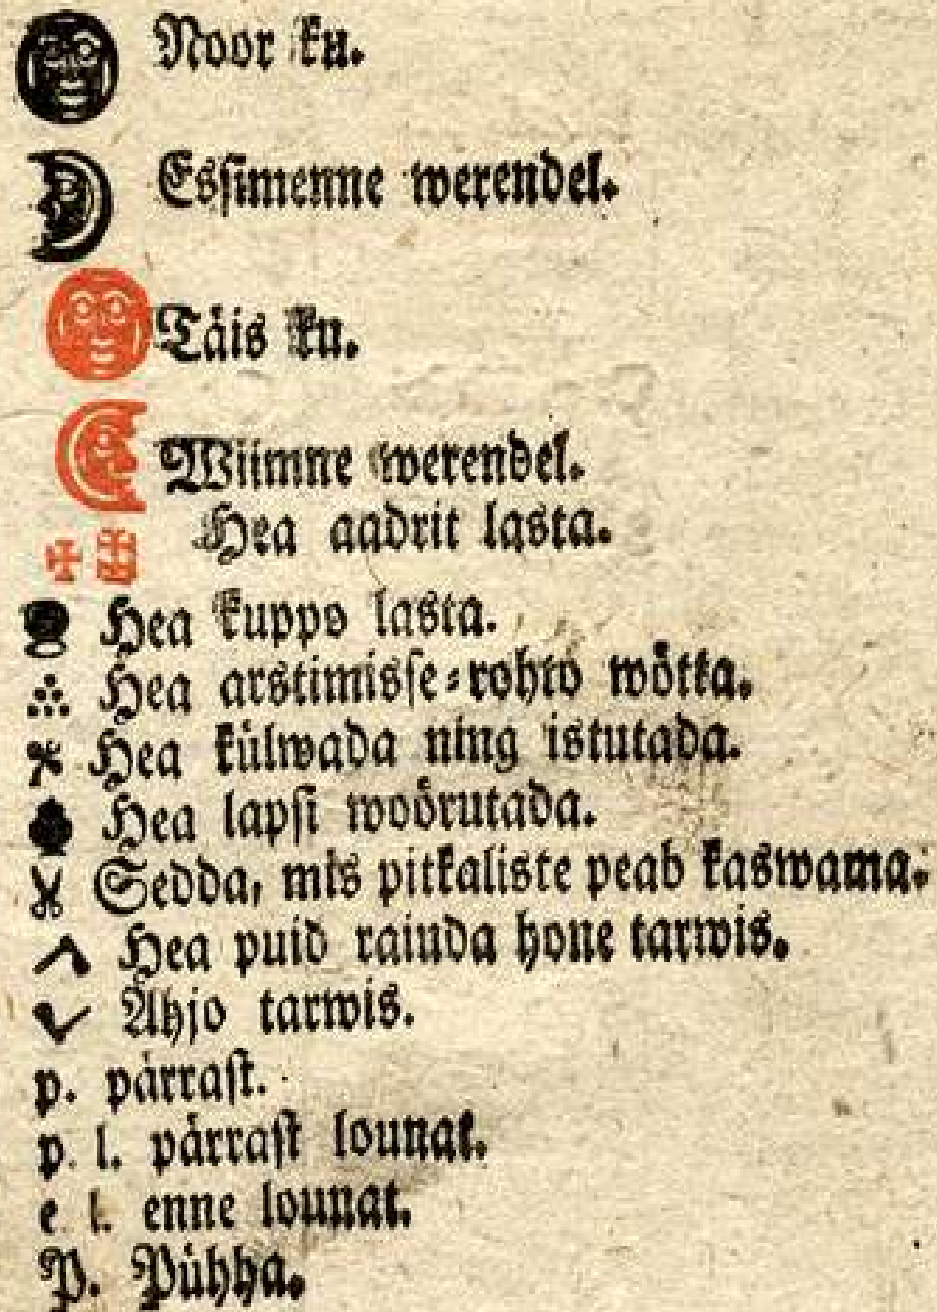 Noor ku.
Essimenne werendel.
Täis ku.
Wiimne werendel.
Hea aadrit lasta.
Hea kuppo lasta.
Hea arstimisse-rohto wötta.
Hea külwada ning istutada.
Hea lapsi woörutada.
Sedda, mis pitkaliste peab kaswama.
Hea puid raiuda hone tarwis.
Ahjo tarwis.
p. pärrast.
p. l. pärrast lounat.
e l. enne lounat.
P. Pühha.